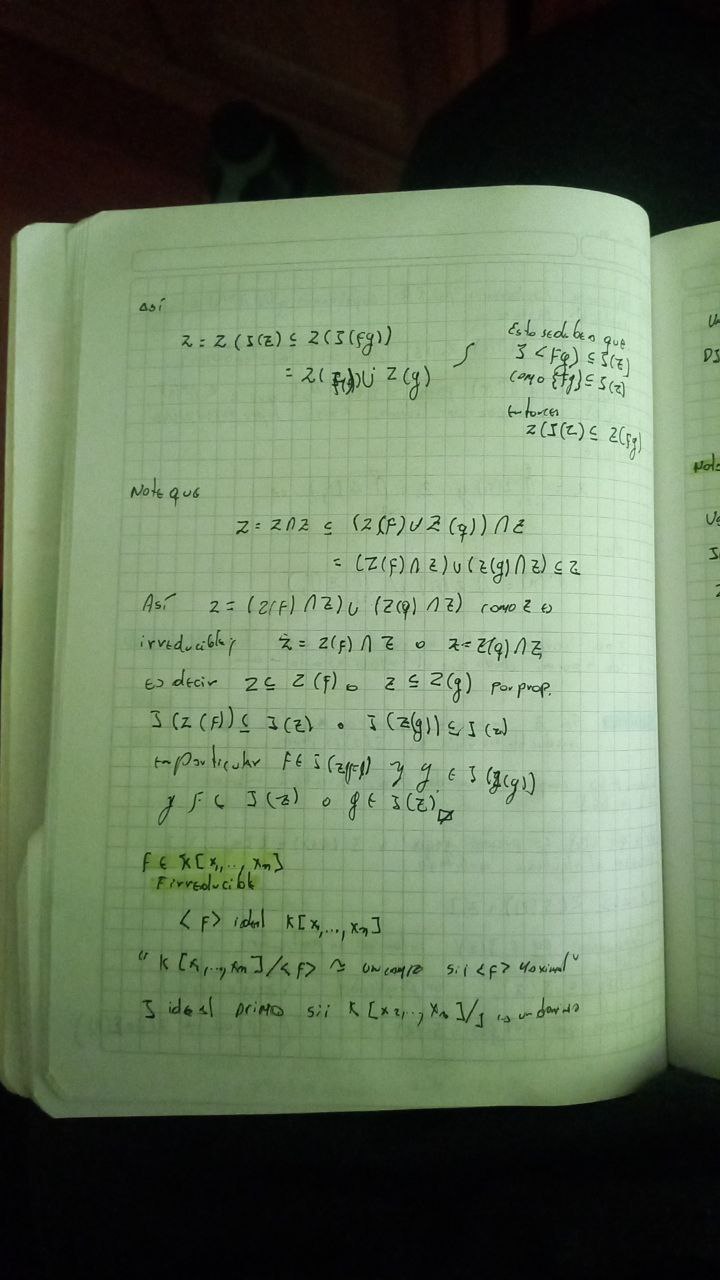 Así
Z = Z(J(Z)) ⊆ Z(J(fg))
= Z(f) ∪ Z(g)
Esto se debe a que
J <fg> ⊆ J(Z)
como {fg} ⊆ J(Z)
entonces
Z(J(Z)) ⊆ Z(fg)
Note que
Z = Z ∩ Z ⊆ (Z(F) ∪ Z(g)) ∩ Z
= (Z(F) ∩ Z) ∪ (Z(g) ∩ Z) ⊆ Z
Así Z = (Z(F) ∩ Z) ∪ (Z(g) ∩ Z) como Z es
irreducible, Z = Z(F) ∩ Z o Z = Z(g) ∩ Z,
es decir Z ⊆ Z(F) o Z ⊆ Z(g) por prop.
J(Z(F)) ⊆ J(Z) o J(Z(g)) ⊆ J(Z)
en particular F ∈ J(Z(F)) y g ∈ J(Z(g))
y F ∈ J(Z) o g ∈ J(Z)
F ∈ K[x1,..., xn]
F irreducible
<F> ideal K[x1,..., xn]
"K[x1,..., xn]/<F> ≈ un campo sii <F> Maximal"
J ideal primo sii K[x1,..., xn]/J es un dominio